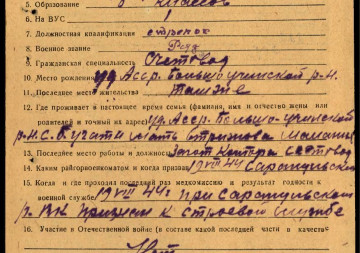 5. Образование 6 классов
6. На ВУС 1
7. Должностная квалификация стрелок
8. Военное звание Ряд
9. Гражданская специальность Счетовод
10. Место рождения уд. Асср. Больше-учинской р-н.
11. Последнее место жительства там же
12. Где проживает в настоящее время семья (фамилия, имя и отчество жены или
родителей и точный их адрес) уд. Асср. Польшо-учинской
р-н. С. мать
13. Последнее место работы и должность контора счетовод
14. Каким райгорвоенкоматом и когда призван 19 VIII 44 г Сарапульским
15. Когда и где проходил последний раз медкомиссию и результат годности к
военной службе 19 VIII 44 г при Сарапульском
р. ВК признан к строевой службе
16. Участие в Отечественной войне (в составе какой последней части в качест-
Нет